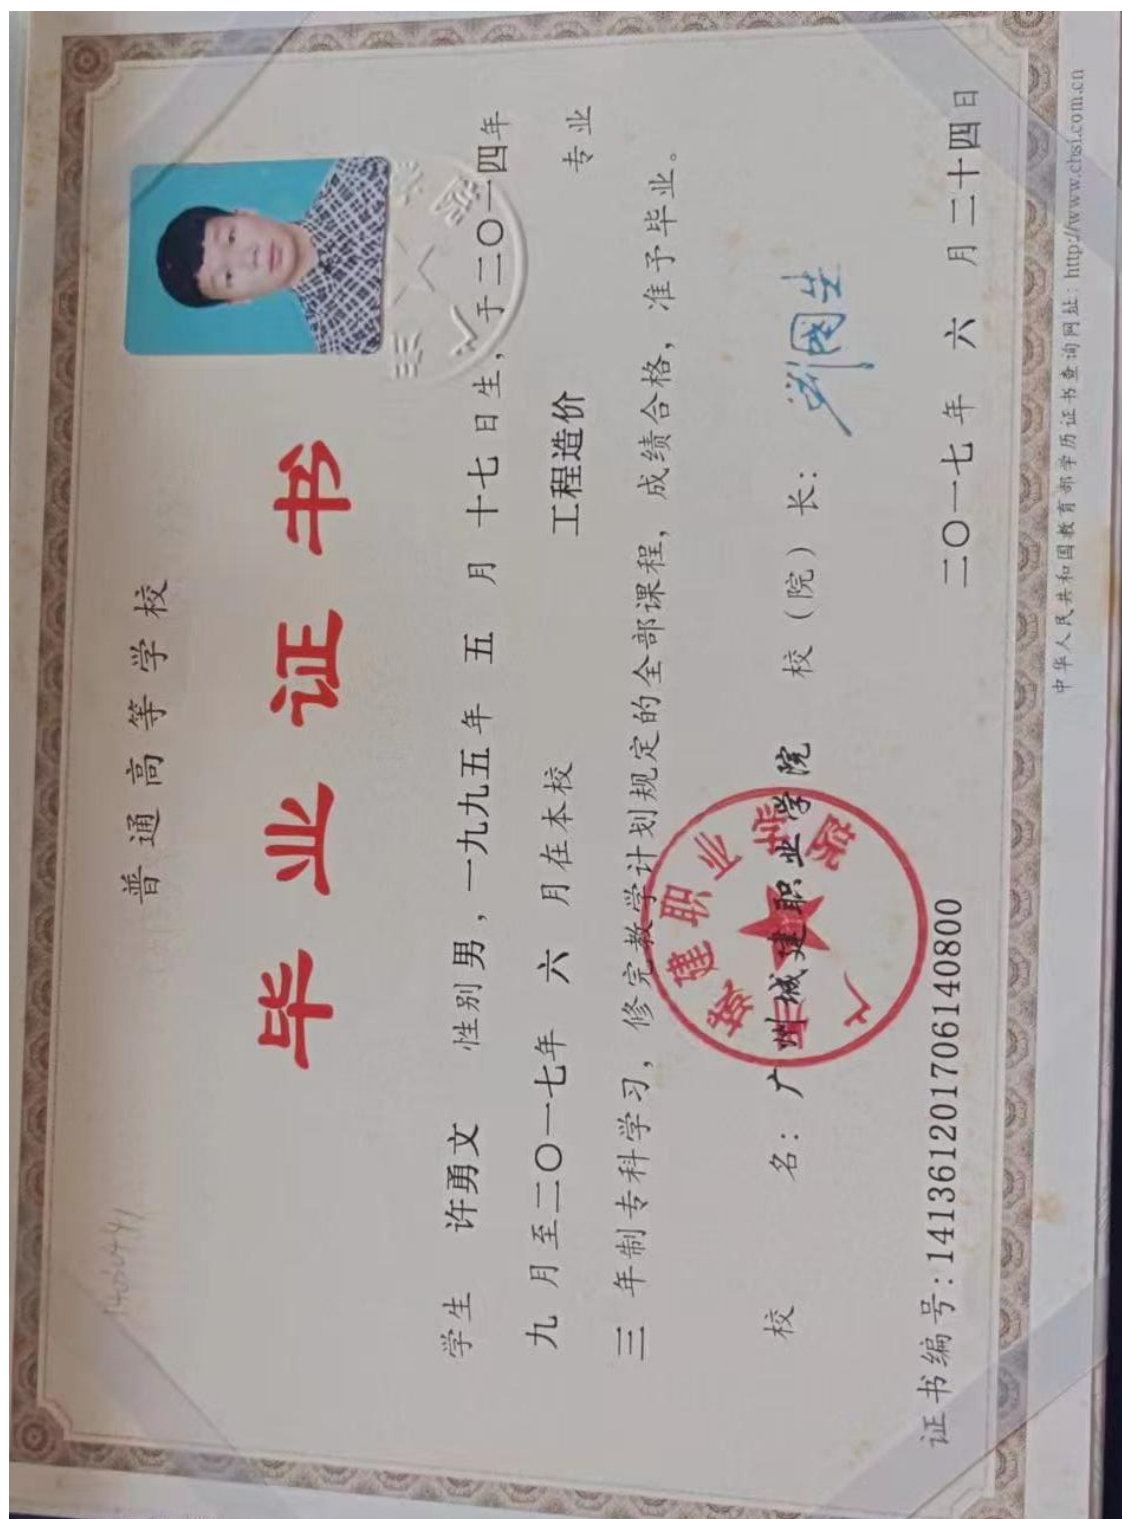 普通高等学校
毕业证书
学生 许勇文 性别男，一九九五年 五 月 十七 日生，于二〇一四年
九 月至二〇一七年 六 月在本校 工程造价 专业
三 年制专科学习，修完教学计划规定的全部课程，成绩合格，准予毕业。
校 名：广州城建职业学院 校（院）长：
证书编号：141361201706140800 二〇一七年 六 月二十四日
中华人民共和国教育部学历证书查询网址：http://www.chsi.com.cn